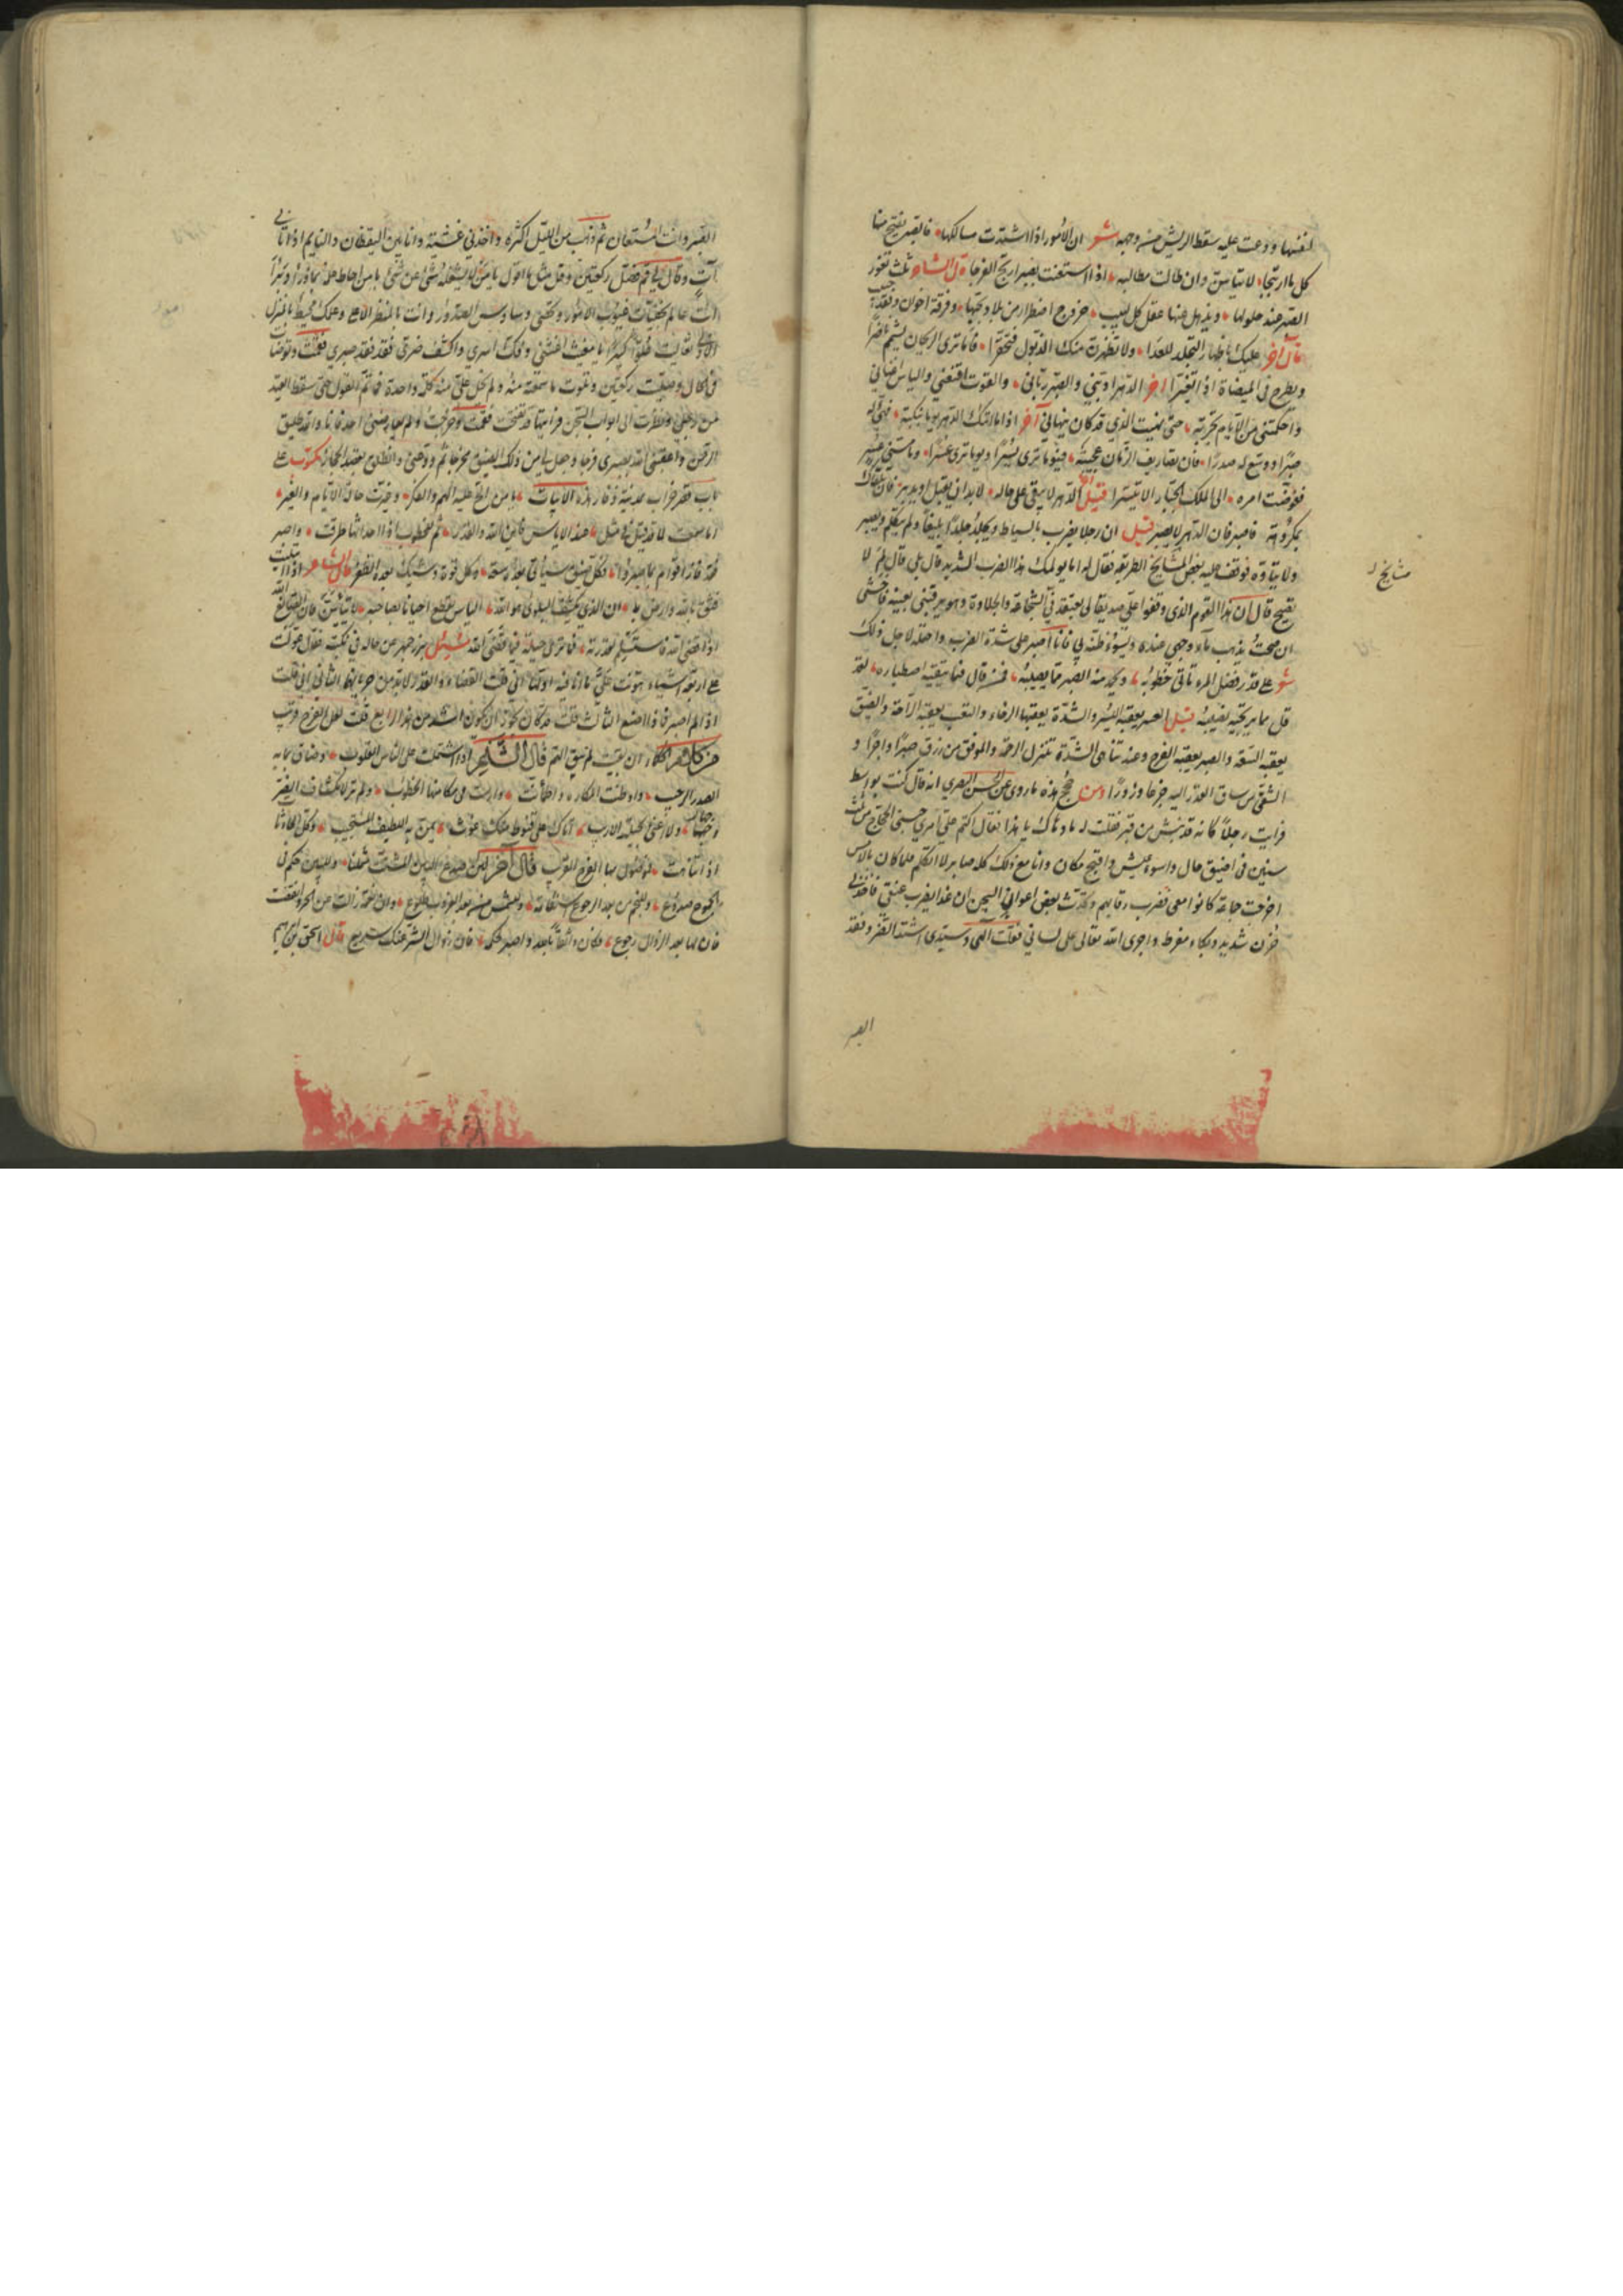 لغنها ودعت عليه سقط الريش من وجهه شعر ان الامور اذا اشتدت مسالكها فالصبر يفتح منها
كل ما ارتتجا لا تيأسن وان طالت مطالبه اذا استعنت بصبر ان ترى الفرجا قال الشاعر ثلث تغور
الصبر عند حلولها ويذهل عنها عقل كل لبيب خروج اضطرار من بلاد يحبها وفرقة اخوان وفقد حبيب
قال آخر عليك باظهار التجلد للعدا ولا تظهرن منك الذبول فتحقرا فاما ترى الريحان يشم ناضرا
ويطرح في الميضاة اذا تغيرا آخر الدهر ادبني والصبر رباني والقوت اقنعني والياس اغناني
واحكمتني من الايام تجربة حتى نهيت الذي قد كان ينهاني آخر اذا ما اتتك الدهر يوما بنكبة فهيئ له
صبرا ووسع له صدرا فان تصاريف الزمان عجيبة فيوما ترى يسرا ويوما ترى عسرا وما مسني عسر
ففوضت امره الى الملك الجبار الا تيسرا قيل الدهر لا يبقى على حاله لا بد ان يقبل او يدبر فان تلقاك
بمكروهه فاصبر فان الدهر لا يصبر قيل ان رجلا يضرب بالسياط ويجلد جلدا بليغا ولم يتكلم ويصبر
ولا يتاوه فوقف عليه بعض المشايخ الطريقة فقال له اما يولمك هذا الضرب الشديد قال بلى قال لم لا
تصيح قال ان هذا القوم الذي وقفوا علي صديقا لي يعتقد في الشجاعة والجلادة وهو يرقبني بعينه فاخشى
ان صحت يذهب ماء وجهي عنده ويسوء ظنه بي فانا اصبر على شدة الضرب واحتمله لاجل ذلك
شعر على قدر فضل المرء تاتي خطوبه ويحمد منه الصبر مما يصيبه فمن قل فيما يتقيه اصطباره لقد
قل مما يرتجيه نصيبه قيل العسر يعقبه اليسر والشدة يعقبها الرخاء والتعب يعقبه الراحة والضيق
يعقبه السعة والصبر يعقبه الفرج وعند تناهي الشدة تنزل الرحمة والموفق من رزق صبرا واجرا و
الشقي من ساق القدر اليه جزعا ووزرا ومن نجح هذه ما روي عن الحسن البصري انه قال كنت بواسط
فرايت رجلا كانه قد نبش من قبر فقلت له ما دهاك يا هذا فقال اكتم علي امري حبسني الحجاج من ثلث
سنين في اضيق حال واسوء عيش واقبح مكان وانا مع ذلك كله صابر لا اتكلم فلما كان بالامس
اخرجت جماعة كانوا معي فضرب رقابهم وتحدث بعض اعوان السجن ان غدا يضرب عنقي فاخذني
حزن شديد وبكاء مفرط واجرى الله تعالى على لساني فقلت الهي وسيدي اشتد الضر وفقد
الصبر
مشايخ
الصبر وانت المستعان ثم ذهب من الليل اكثره واخذني غشية وانا بين اليقظان والنايم اذ اتاني
آت وقال لي قم فصل ركعتين وقل مثل ما اقول يا من لا يشغله شئ عن شئ يا من احاط علمه بما ذرأ وبرأ
انت عالم بخفيات غيوب الامور ومحصي وساوس الصدور وانت بالمنظر الاعلى وعلمك محيط بالمنزل
الادنى تعاليت علوا كبيرا يا مغيث اغثني وفك اسري واكشف ضري فقد نفد صبري فقمت وتوضات
في الحال وصليت ركعتين وتلوت ما سمعته منه ولم تختل علي منه كلمة واحدة فما تم القول حتى سقط القيد
من رجلي ونظرت الى ابواب السجن فرايتها قد فتحت فقمت وخرجت ولم يعارضني احد فانا والله طليق
الرحمن واعقبني الله بصبري فرجا وجعل لي من ذلك الضيق مخرجا ثم ودعني وانطلق يقصد الحجاز مكتوب على
باب قصر خراب مدينة ذفار هذه الابيات يا من الح عليه الهم والفكر وغيرت حاله الايام والغير
اما سمعت لما قد قيل في مثل عند الاياس فاين الله والقدر نم للخطوب اذا احداثها طرقت واصبر
فقد فاز اقوام بما صبروا وكل ضيق سياتي بعده سعة وكل فوت وشيك بعده الظفر قال الشاعر اذا ابتليت
فثق بالله وارض به ان الذي يكشف البلوى هو الله الياس يقطع احيانا بصاحبه لا تيأسن فان الصانع الله
اذا قضى الله فاستسلم لقدرته فما ترى حيلة فيما قضى الله سئل بزرجمهر عن حاله في نكبته فقال عولت
على اربعة اشياء هونت علي ما انا فيه اولها اني قلت القضاء والقدر لا بد من جريانهما الثاني اني قلت
اذا لم اصبر فماذا اصنع الثالث قلت قد كان يجوز ان يكون اشد من هذا الرابع قلت لعل الفرج قريب
ان بقيت لم يبق الهم قال الشاعر اذا اشتملت على الناس القلوب وضاق بما به
الصدر الرحيب واوطنت المكاره واطمأنت وارست في مكامنها الخطوب ولم تر لانكشاف الضر
وجها ولا اغنى بحيلته الاريب اتاك على قنوط منك غوث يمن به اللطيف المستجيب وكل الحادثات
اذا تناهت فموصول بها الفرج القريب قال آخر لئن صدع البين المشتت شملنا فللبين حكم في
الجموع صدوع وللنجم من بعد الرجوع استقامة وللشمس من بعد الغروب طلوع وان نعمة زالت عن الحر وانقضت
فان لها بعد الزوال رجوع وكن واثقا بالله واصبر لحكمه فان زوال الشر عنك سريع قال اسحق بن ابراهيم